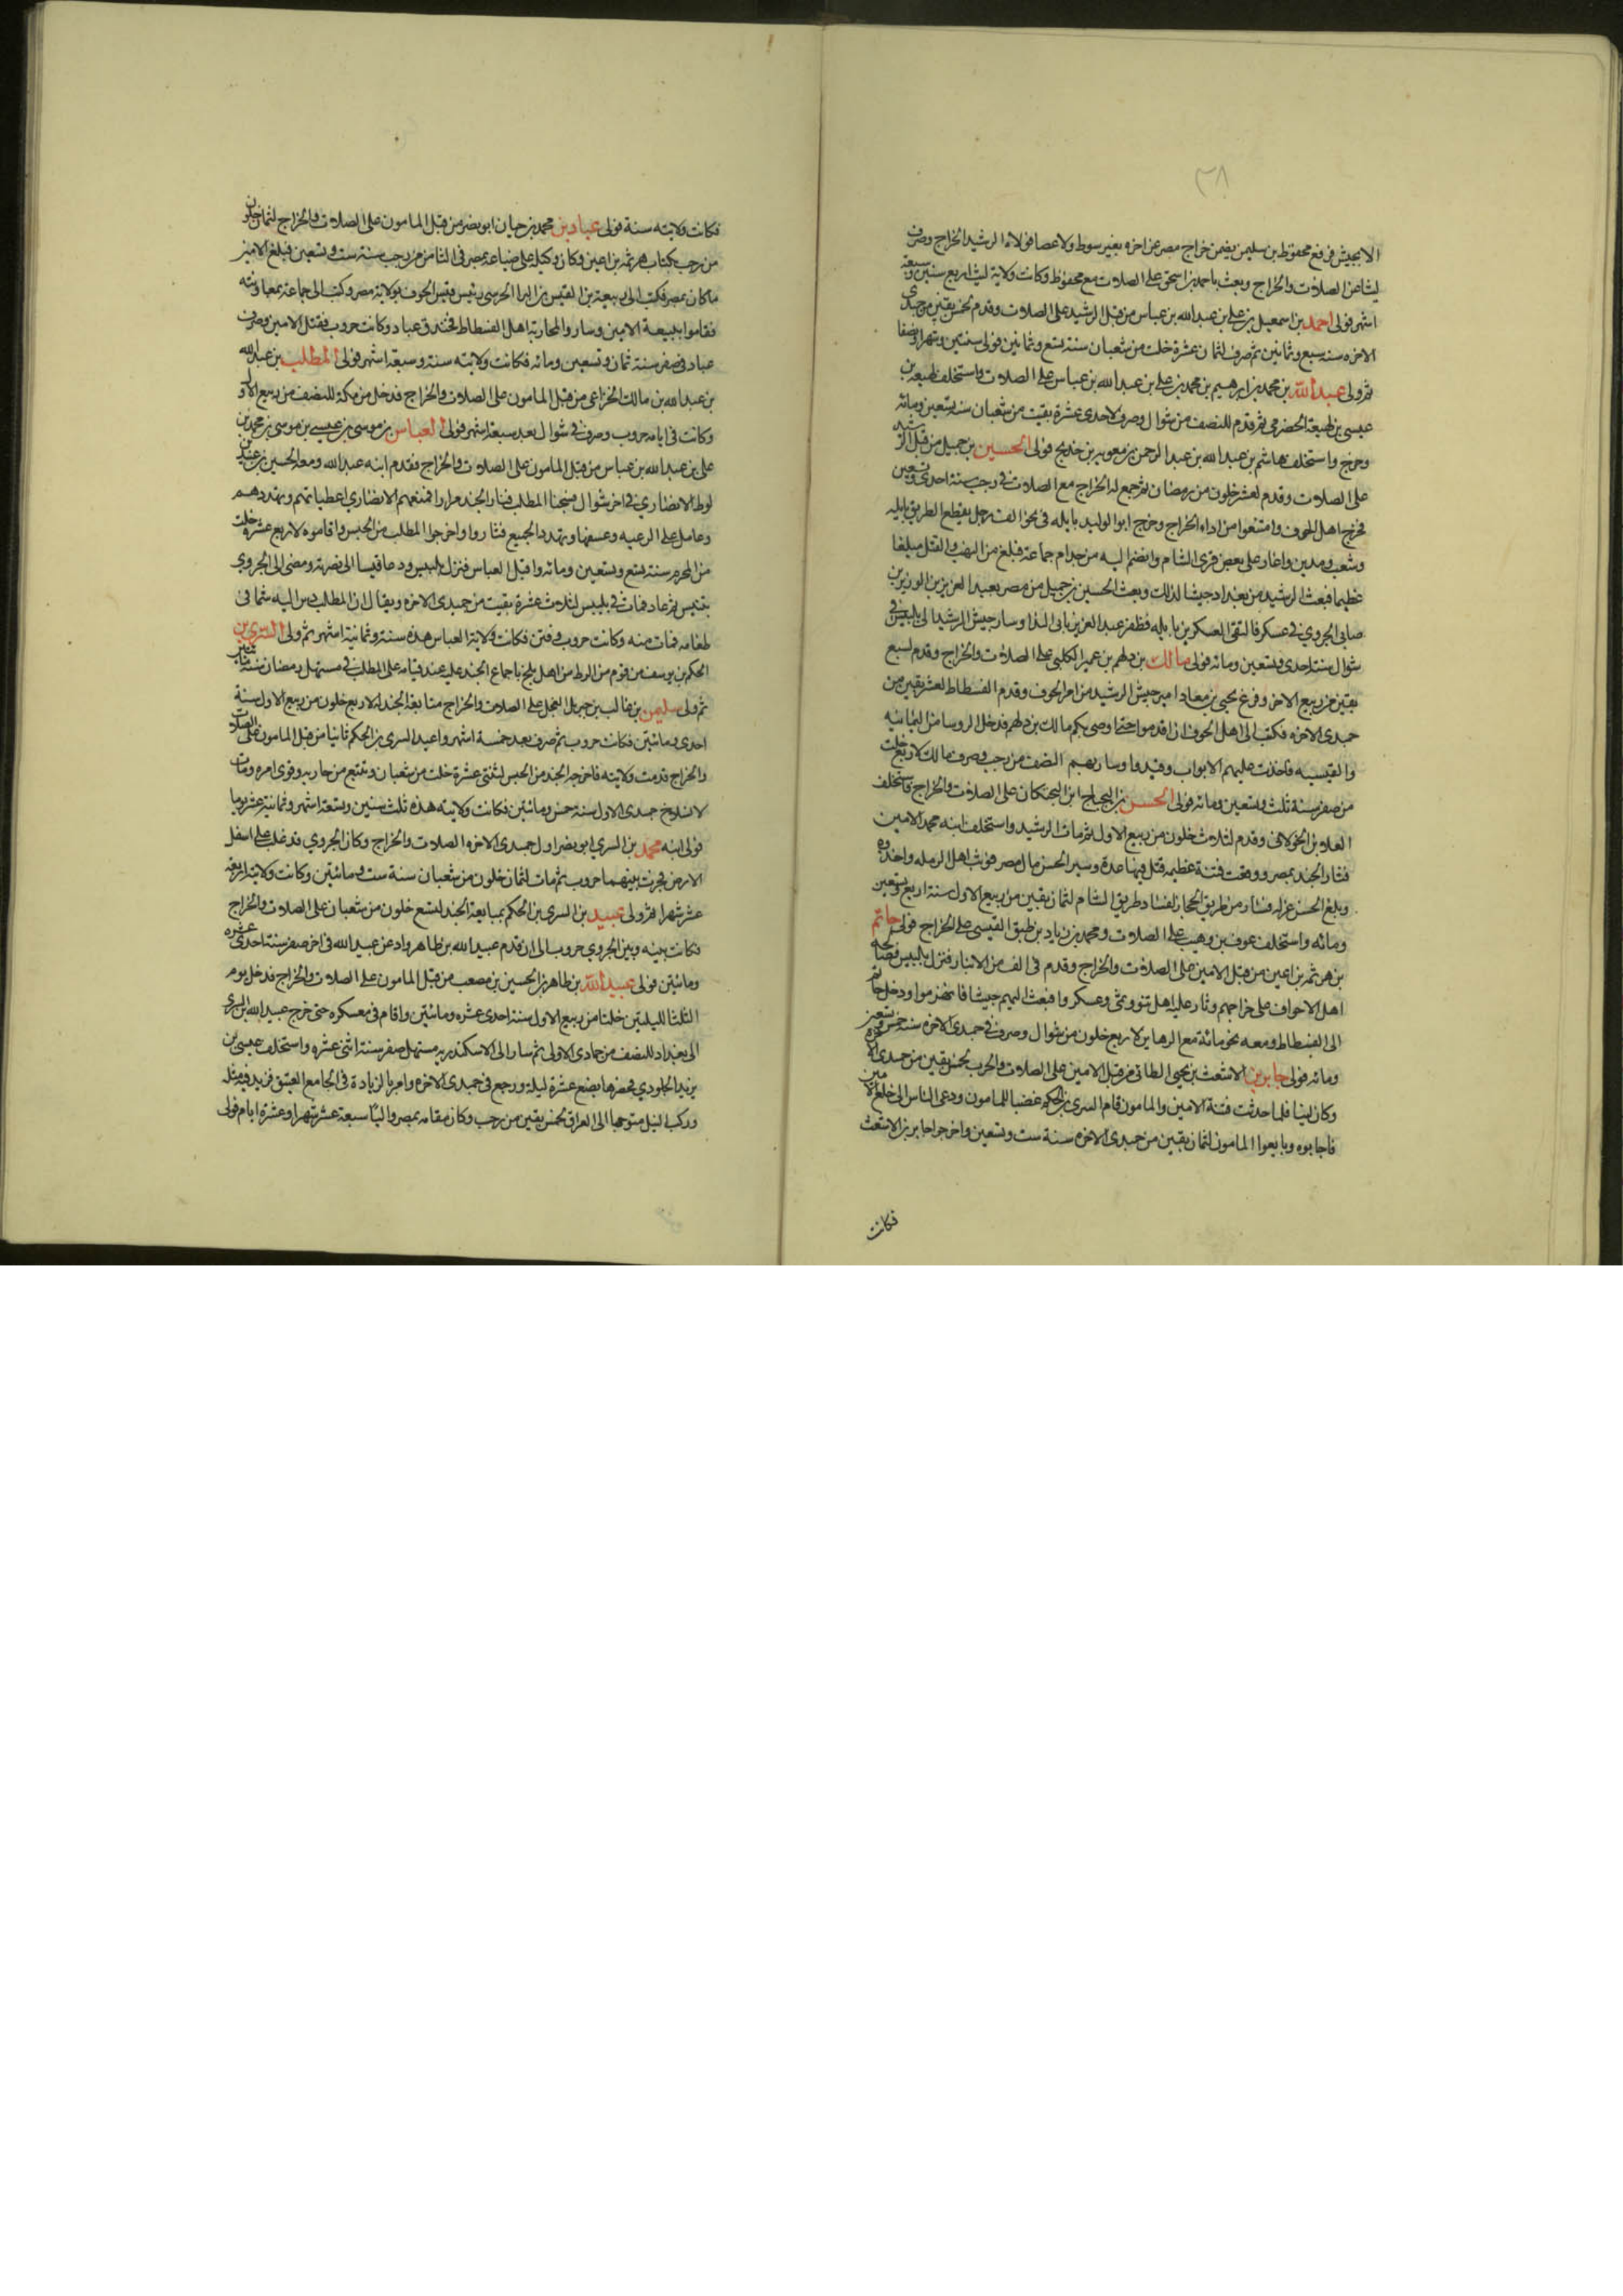 ٣٨
الا بجيش فرفع محفوظ بن سليمن يضمن خراج مصر عن اخره بغير سوط ولا عصا فولاه الرشيد الخراج وصرف
ليثا عن الصلات والخراج وبعث باحمد بن اسحق على الصلات مع محفوظ وكانت ولاية ليث اربع سنين وسبعة
اشهر فولى احمد بن اسمعيل بن على بن عبد الله بن عباس من قبل الرشيد على الصلات وقدم لخمس بقين من جمدى
الاخره سنه سبع وثمانين ثم صرف لثمان عشرة خلت من شعبان سنة تسع وثمانين فولى سنتين وشهرا ونصفا
ثم ولى عبد الله بن محمد بن ابرهيم بن محمد بن على بن عبد الله بن عباس على الصلات واستخلف لهيعة بن
عيسى بن لهيعة الحضرمى ثم قدم للنصف من شوال وصرف لاحدى عشرة بقيت من شعبان سنه تسعين ومائه
وخرج واستخلف هاشم بن عبد الله بن عبد الرحمن بن معويه بن خديج فولى الحسين بن جميل من قبل الرشيد
على الصلات وقدم لعشر خلون من رمضان ثم جمع له الخراج مع الصلات فى رجب سنة احدى وتسعين
فخرج اهل الحوف وامتنعوا من اداء الخراج وخرج ابو الوليد بايله فى نحو الف رجل يقطع الطريق بايله
وشعب ومدين واغار على بعض قرى الشام وانضم اليه من جدام جماعة فبلغ من النهب والقتل مبلغا
عظيما فبعث الرشيد من بغداد جيشا لذلك وبعث الحسين بن جميل من مصر بعبد العزيز بن الوزير بن
صابى الجروي فى عسكر فالتقى العسكرين بايله فظفر عبد العزيز بابى الندا وسار جيش الرشيد الى بلبيس فى
شوال سنة احدى وتسعين ومائه فولى مالك بن دلهم بن عمير الكلبى على الصلاة والخراج وقدم لسبع
بقين من ربيع الاخر وفرغ يحيى بن معاذ امير جيش الرشيد من امر الحوف وقدم الفسطاط لعشر بقين من
جمدى الاخره فكتب الى اهل الحوف ان اقدموا حتى اوصى بكم مالك بن دلهم فدخل الروسا من اليمانيه
والقيسيه فاخذت عليهم الابواب وقيدوا وسار بهم النصف من رجب وصرف مالك لاربع خلت
من صفر سنة ثلث وتسعين ومائه فولى الحسن بن البحباح ابن البختكان على الصلات والخراج فاستخلف
العلا بن الخولانى وقدم لثلاث خلون من ربيع الاول ثم مات الرشيد واستخلف ابنه محمد الامين
فثار الجند بمصر ووقعت فتنة عظيمه قتل فيها عدة وسير الحسن مال مصر فوثب اهل الرمله واخذوه
وبلغ الحسن عزله فسار من طريق الحجاز لفساد طريق الشام لثمان بقين من ربيع الاول سنة اربع وتسعين
ومائه واستخلف عوف بن وهيب على الصلات ومحمد بن زياد بن طبق القيسى على الخراج فولى حاتم
بن هرثمه بن اعين من قبل الامين على الصلات والخراج وقدم فى الف من الابنا فنزل بلبيس فصالحه
اهل الاحواف على خراجهم وثار عليه اهل تنو وتمى وعسكروا فبعث اليهم جيشا فانهزموا ودخل حاتم
الى الفسطاط ومعه نحو مائة مع الرهاين لاربع خلون من شوال وصرف فى جمدى الاخره سنة خمس وتسعين
ومائه فولى جابر بن الاشعث بن يحيى الطائى من قبل الامين على الصلات والحرب لخمس بقين من جمدى الاخره
وكان لينا فلما حدثت فتنة الامين والمامون قام السرى بن الحكم غضبا للمامون ودعى الناس الى خلع الامين
فاجابوه وبايعوا المامون لثمان بقين من جمدى الاخره سنة ست وتسعين واخرجوا جابر بن الاشعث
فكانت
فكانت ولايته سنة فولى عباد بن محمد بن حيان ابو نصر من قبل المامون على الصلات والخراج لثمان خلون
من رجب بكتاب هرثمه بن اعين وكان وكيله على ضياعه بمصر فى الثامن من رجب سنة ست وتسعين فبلغ الامين
ما كان بمصر فكتب الى ربيعة بن القيس بن الحرسى رئيس قيس الحوف بولاية مصر وكتب الى جماعة بمعاونته
فقاموا ببيعة الامين وساروا لمحاربة اهل الفسطاط فخندق عباد وكانت حروب فقتل الامين وصرف
عباد فى صفر سنة ثمان وتسعين ومائه فكانت ولايته سنة وسبعة اشهر فولى المطلب بن عبد الله
بن عبد الله بن مالك الخزاعى من قبل المامون على الصلات والخراج فدخل من مكة للنصف من ربيع الاول
وكانت فى ايامه حروب وصرف فى شوال بعد سبعة اشهر فولى العباس بن موسى بن عيسى بن موسى بن محمد بن
على بن عبد الله بن عباس من قبل المامون على الصلات والخراج فقدم ابنه عبد الله ومعه الحسين بن عبيد بن
لوط الانصاري فى اخر شوال فسجنا المطلب فثار الجند مرارا فمنعهم الانصاري اعطياتهم وتهددهم
وعامل على الرعيه وعسفها وتهدد الجميع فثاروا واخرجوا المطلب من الحبس واقاموه لاربع عشرة خلت
من المحرم سنة تسع وتسعين ومائه واقبل العباس فنزل بلبيس ودعا قيسا الى نصرته ومضى الى الجروي
بتنيس ثم عاد فمات فى بلبيس لثلاث عشرة بقيت من جمدى الاخره ويقال ان المطلب دس اليه سما فى
طعامه فمات منه وكانت حروب وفتن فكانت ولاية العباس هذه سنة وثمانية اشهر ثم ولى السرى بن
الحكم بن يوسف من قوم من الزط من اهل بلخ باجماع الجند عليه عند قيامه على المطلب فى مستهل رمضان سنة مائتين
ثم ولى سليمن بن غالب بن جبريل البجلى على الصلات والخراج مبايعة الجند له لاربع خلون من ربيع الاول سنة
احدى ومائتين فكانت حروب ثم صرف بعد خمسة اشهر واعيد السرى بن الحكم ثانيا من قبل المامون على الصلات
والخراج قدمت ولايته فاخرجه الجند من الحبس لثنتى عشرة خلت من شعبان وتتبع من حاربه وقوى امره ومات
لانسلاخ جمدى الاول سنة خمس ومائتين فكانت ولايته هذه ثلث سنين وتسعة اشهر وثمانية عشر يوما
فولى ابنه محمد بن السري ابو نصر اول جمدى الاخره الصلات والخراج وكان الجروي قد غلب على اسفل
الارض فجرت بينهما حروب ثم مات لثمان خلون من شعبان سنة ست ومائتين وكانت ولايته اربعه
عشر شهرا ثم ولى عبيد بن السرى بن الحكم بمبايعة الجند لتسع خلون من شعبان على الصلات والخراج
فكانت بينه وبين الجروي حروب الى ان قدم عبد الله بن طاهر واذعن عبيد الله فى اخر صفر سنة احدى عشره
ومائتين فولى عبد الله بن طاهر بن الحسين بن مصعب من قبل المامون على الصلات والخراج فدخل يوم
الثلثا لليلتين خلتا من ربيع الاول سنة احدى عشره ومائتين واقام فى معسكره حتى خرج عبيد الله بن السرى
الى بغداد للنصف من جمادى الاولى ثم سار الى الاسكندريه مستهل صفر سنة اثنى عشره واستخلف عيسى بن
يزيد الجلودي فحصرها بضع عشرة ليلة ورجع فى جمدى الاخره وامر بالزيادة فى الجامع العتيق فزيد فيه مثله
وركب النيل متوجها الى العراق لخمس بقين من رجب وكان مقامه بمصر واليًا سبعة عشر شهرا وعشرة ايام فولى